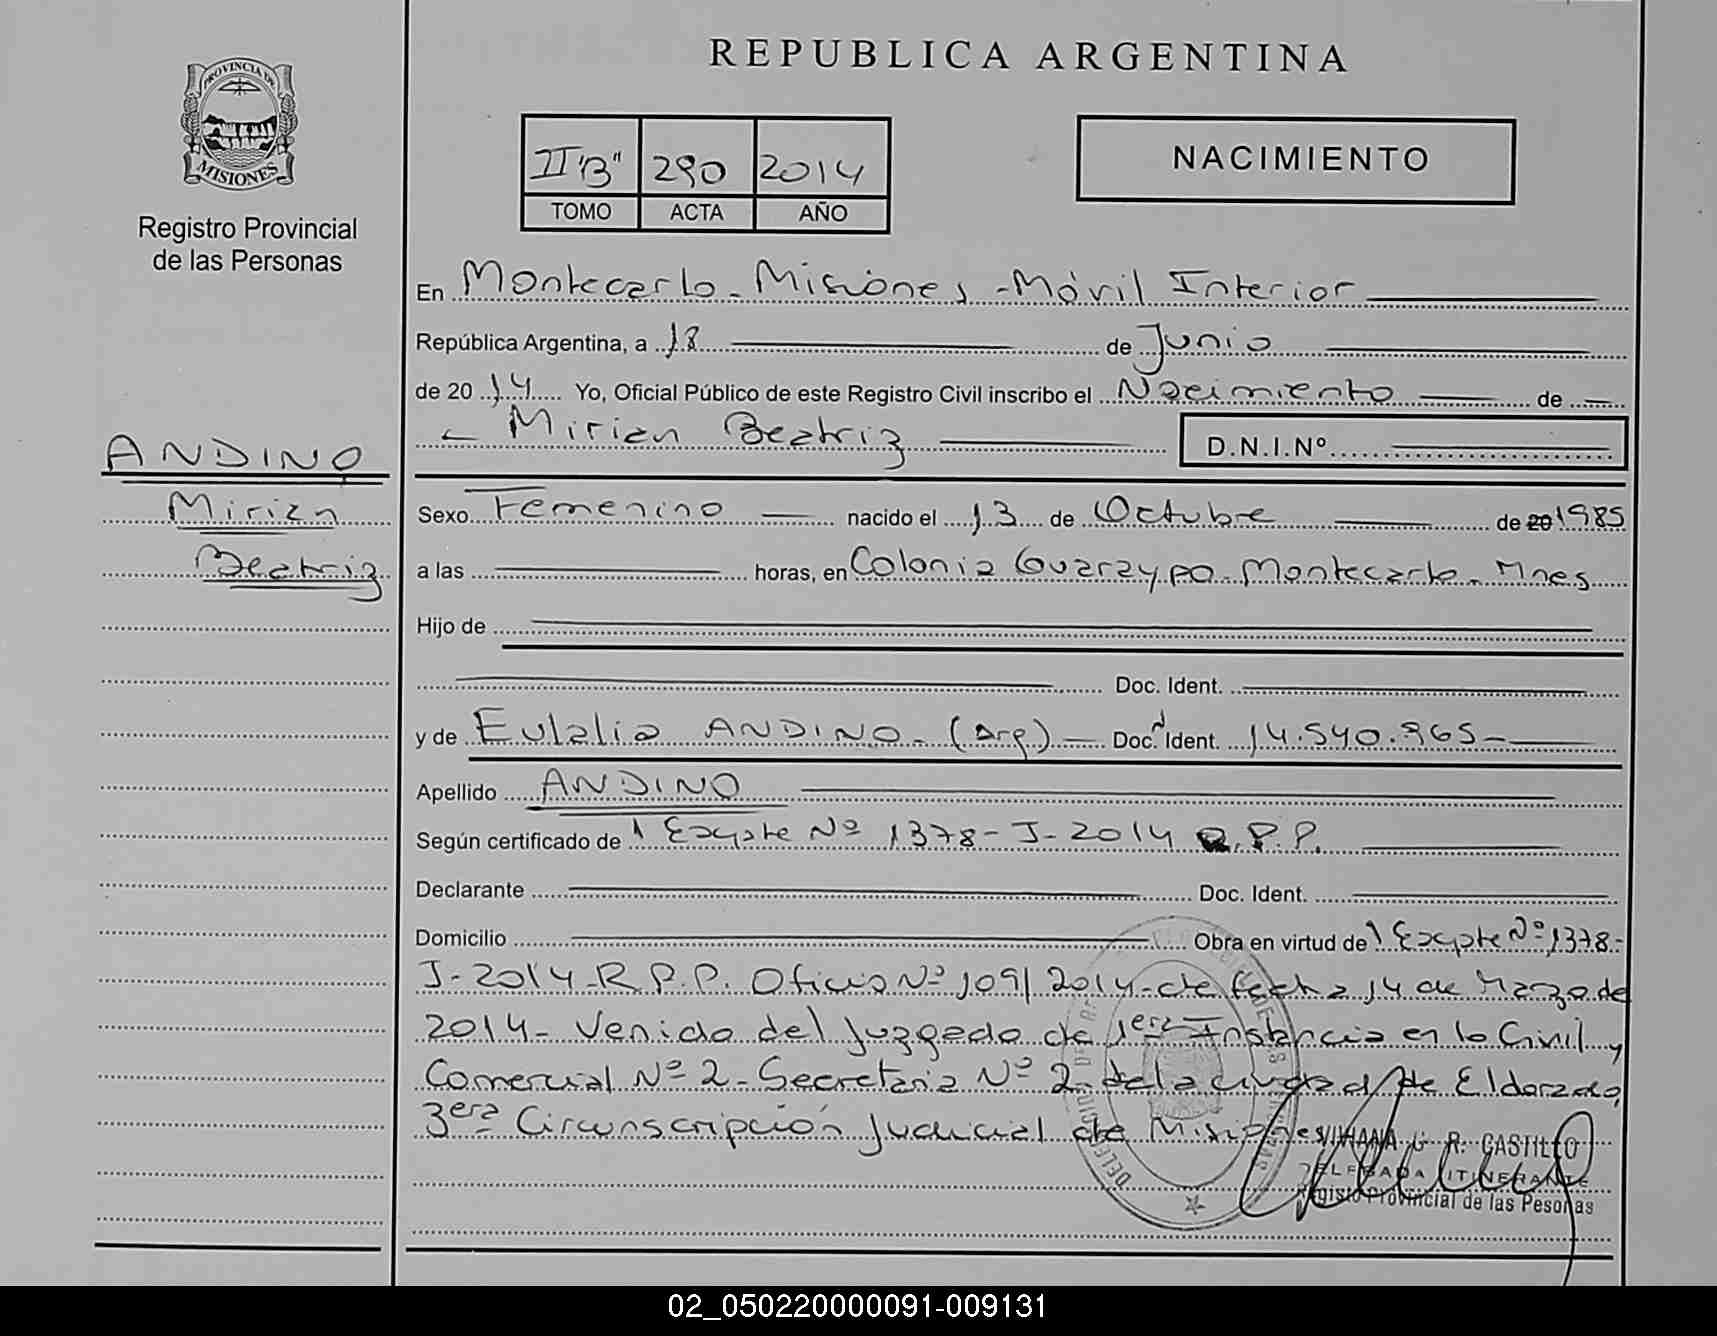 REPUBLICA ARGENTINA
PROVINCIA DE
MISIONES
Registro Provincial
de las Personas
II "B" 290 2014
TOMO ACTA AÑO
NACIMIENTO
En Montecarlo - Misiones - Móvil Interior
República Argentina, a 18 de Junio
de 20 14 Yo, Oficial Público de este Registro Civil inscribo el Nacimiento de
Mirian Beatriz D.N.I.Nº
ANDINO
Mirian
Beatriz
Sexo Femenino nacido el 13 de Octubre de 20 1985
a las horas, en Colonia Guaraypo - Montecarlo - Mnes
Hijo de
Doc. Ident.
y de Eulalia ANDINO - (Arg) - Doc. Ident. 14.540.965 -
Apellido ANDINO
Según certificado de 1 Expte Nº 1378 - J - 2014 R.P.P.
Declarante Doc. Ident.
Domicilio Obra en virtud de 1 Expte Nº 1378 -
J - 2014 - R.P.P. Oficio Nº 109/2014 - de fecha 14 de Marzo de
2014 - Venido del Juzgado de 1era Instancia en lo Civil y
Comercial Nº 2 - Secretaria Nº 2 - de la ciudad de Eldorado,
3era Circunscripción Judicial de Misiones
VIVIANA G. R. CASTILLO
DELEGADA ITINERANTE
Registro Provincial de las Pesonas
02_050220000091-009131